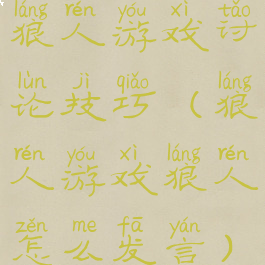 láng rén yóu xì tǎo
狼人游戏讨
lùn jì qiǎo láng
论技巧（狼
rén yóu xì láng rén
人游戏狼人
zěn me fā yán
怎么发言）